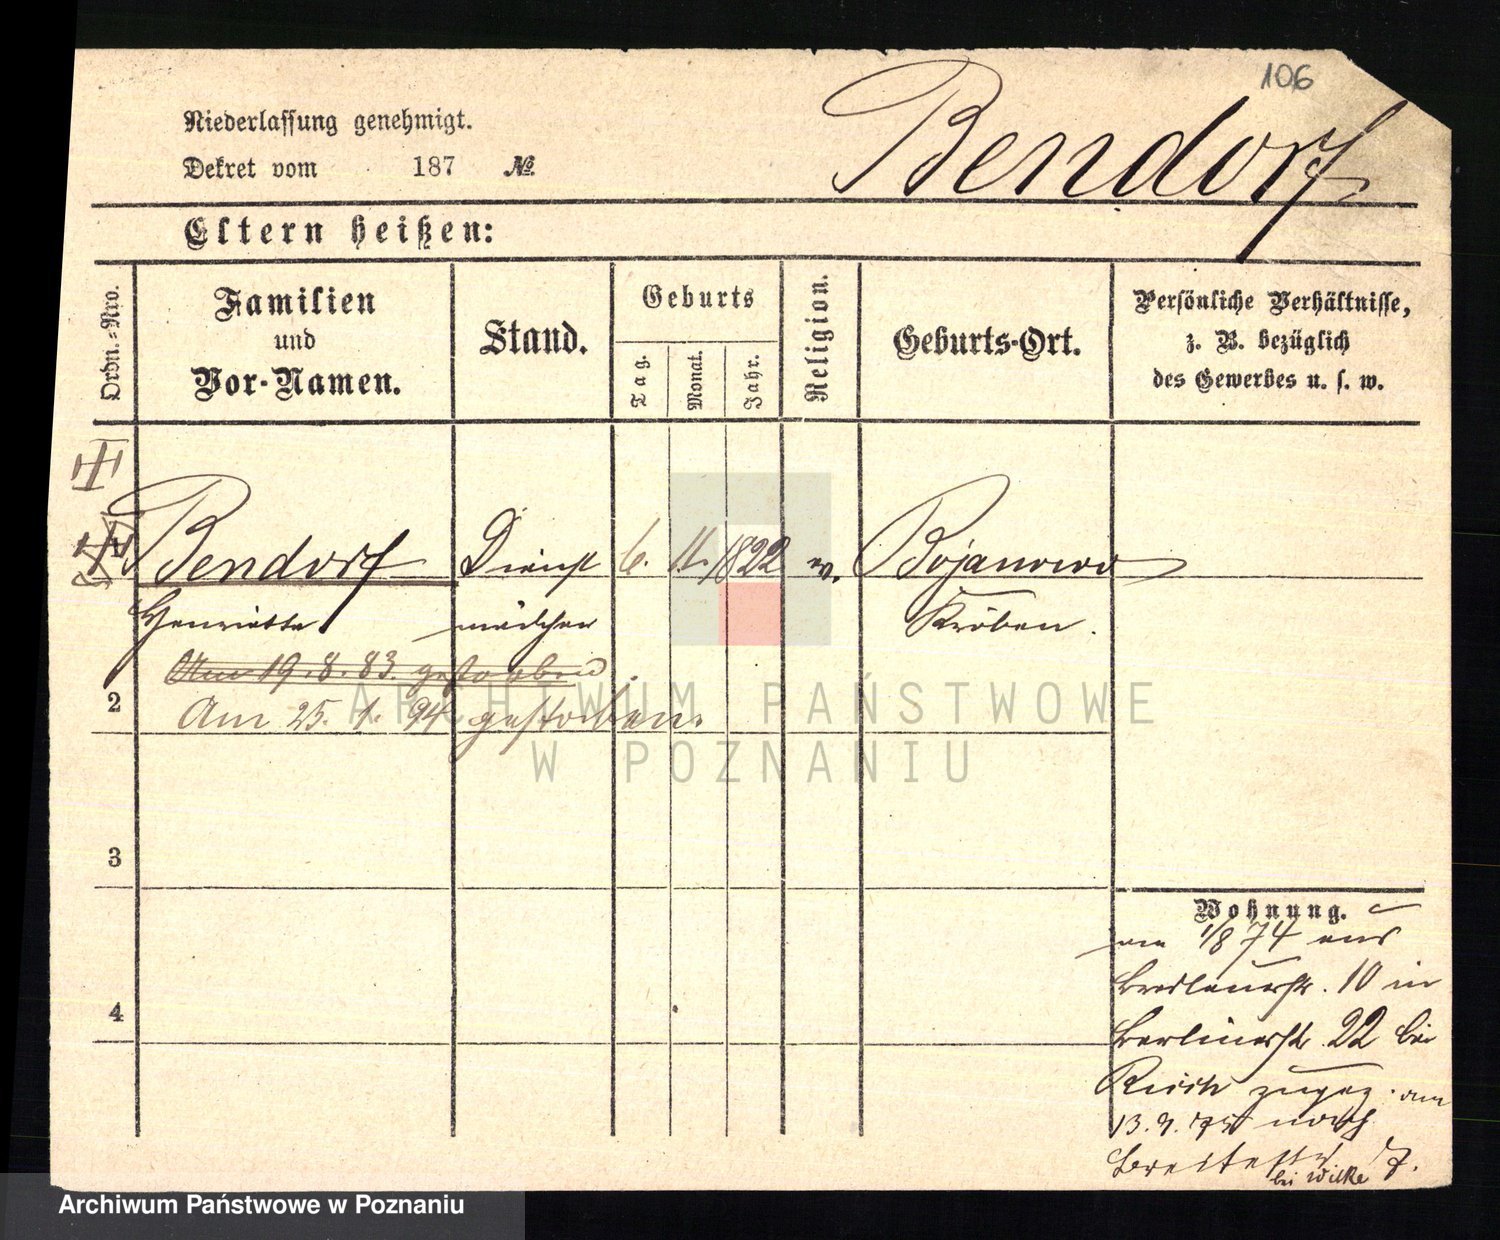 106
Niederlassung genehmigt.
Bendorf
Dekret vom 187 №
Eltern heißen:
Ordn.-Nro.
Familien
und
Vor-Namen.
Stand.
Geburts
Tag.
Monat.
Jahr.
Religion.
Geburts-Ort.
Persönliche Verhältnisse,
z. B. bezüglich
des Gewerbes u. s. w.
Bendorf Dienst 6. 11. 1822 Bojanowo
Henriette mädchen Kröben.
Am 19.8.83. gestorben
2 Am 25. 1. 94 gestorben.
ARCHIWUM PAŃSTWOWE
W POZNANIU
3
Wohnung.
am 1/8 74 aus
Breslauerstr. 10 in
4
Berlinerstr. 22 bei
zugez. am
13. 9. 75 nach
Breitestr 7.
bei Wilke
Archiwum Państwowe w Poznaniu